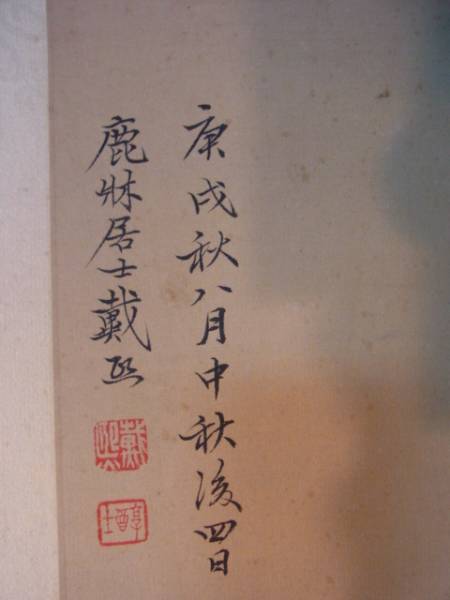 庚戌秋八月中秋後四日
鹿牀居士戴熙
戴熙
醇士